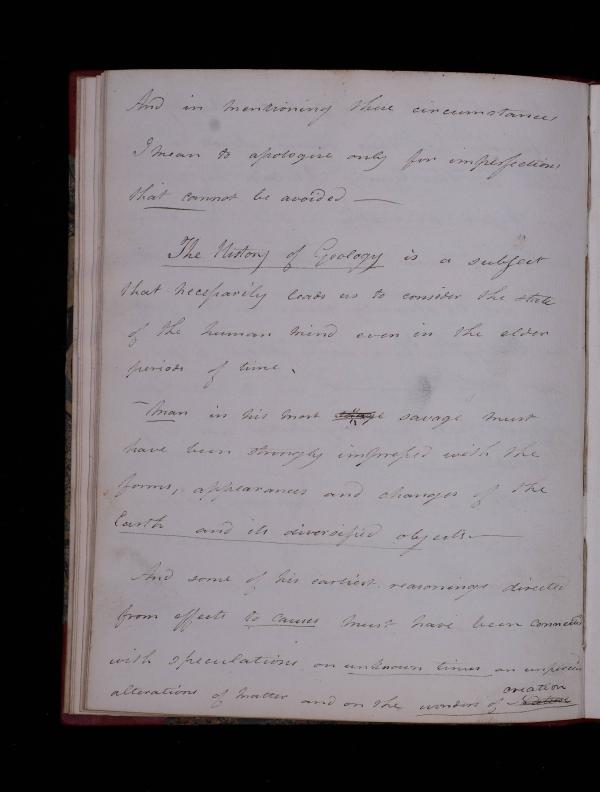 And in mentioning these circumstances
I mean to apologise only for imperfections
that cannot be avoided —
The History of Geology is a subject
that necessarily leads us to consider the state
of the human mind even in the elder
periods of time.
– Man in his most savage must
have been strongly impressed with the
forms, appearances and changes of the
Earth and its diversified objects. —
And some of his earliest reasonings directed
from effects to causes must have been connected
with speculations on unknown times on
alterations of matter and on the wonders of creation